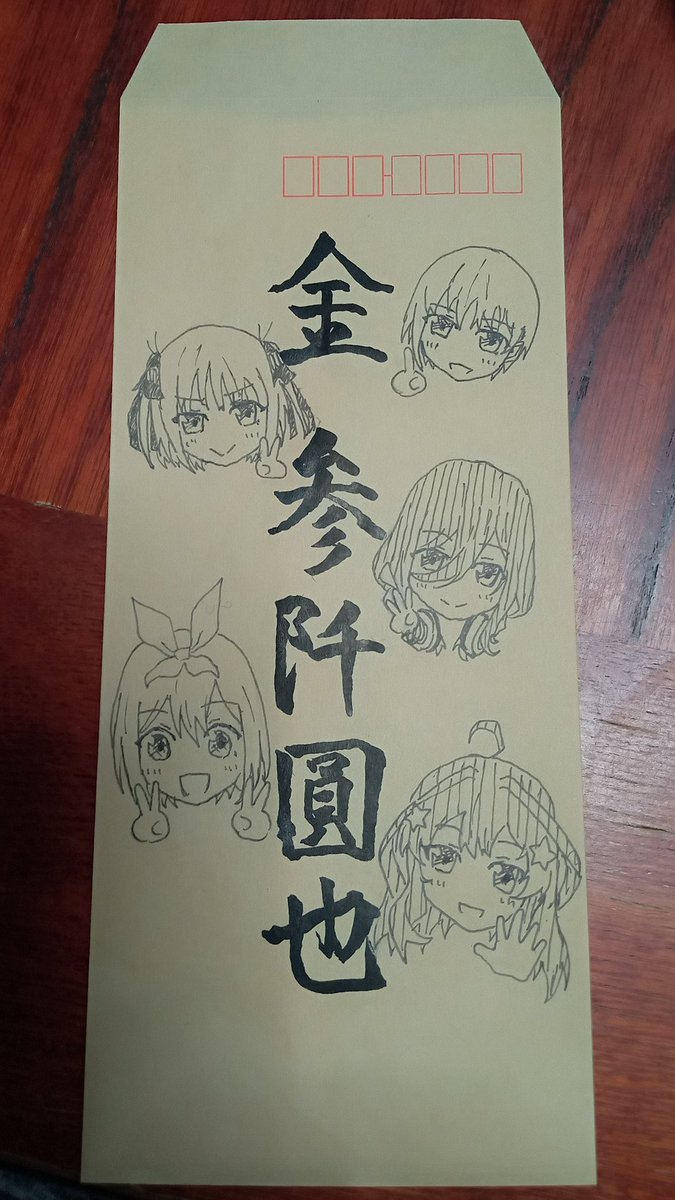 金参阡圓也